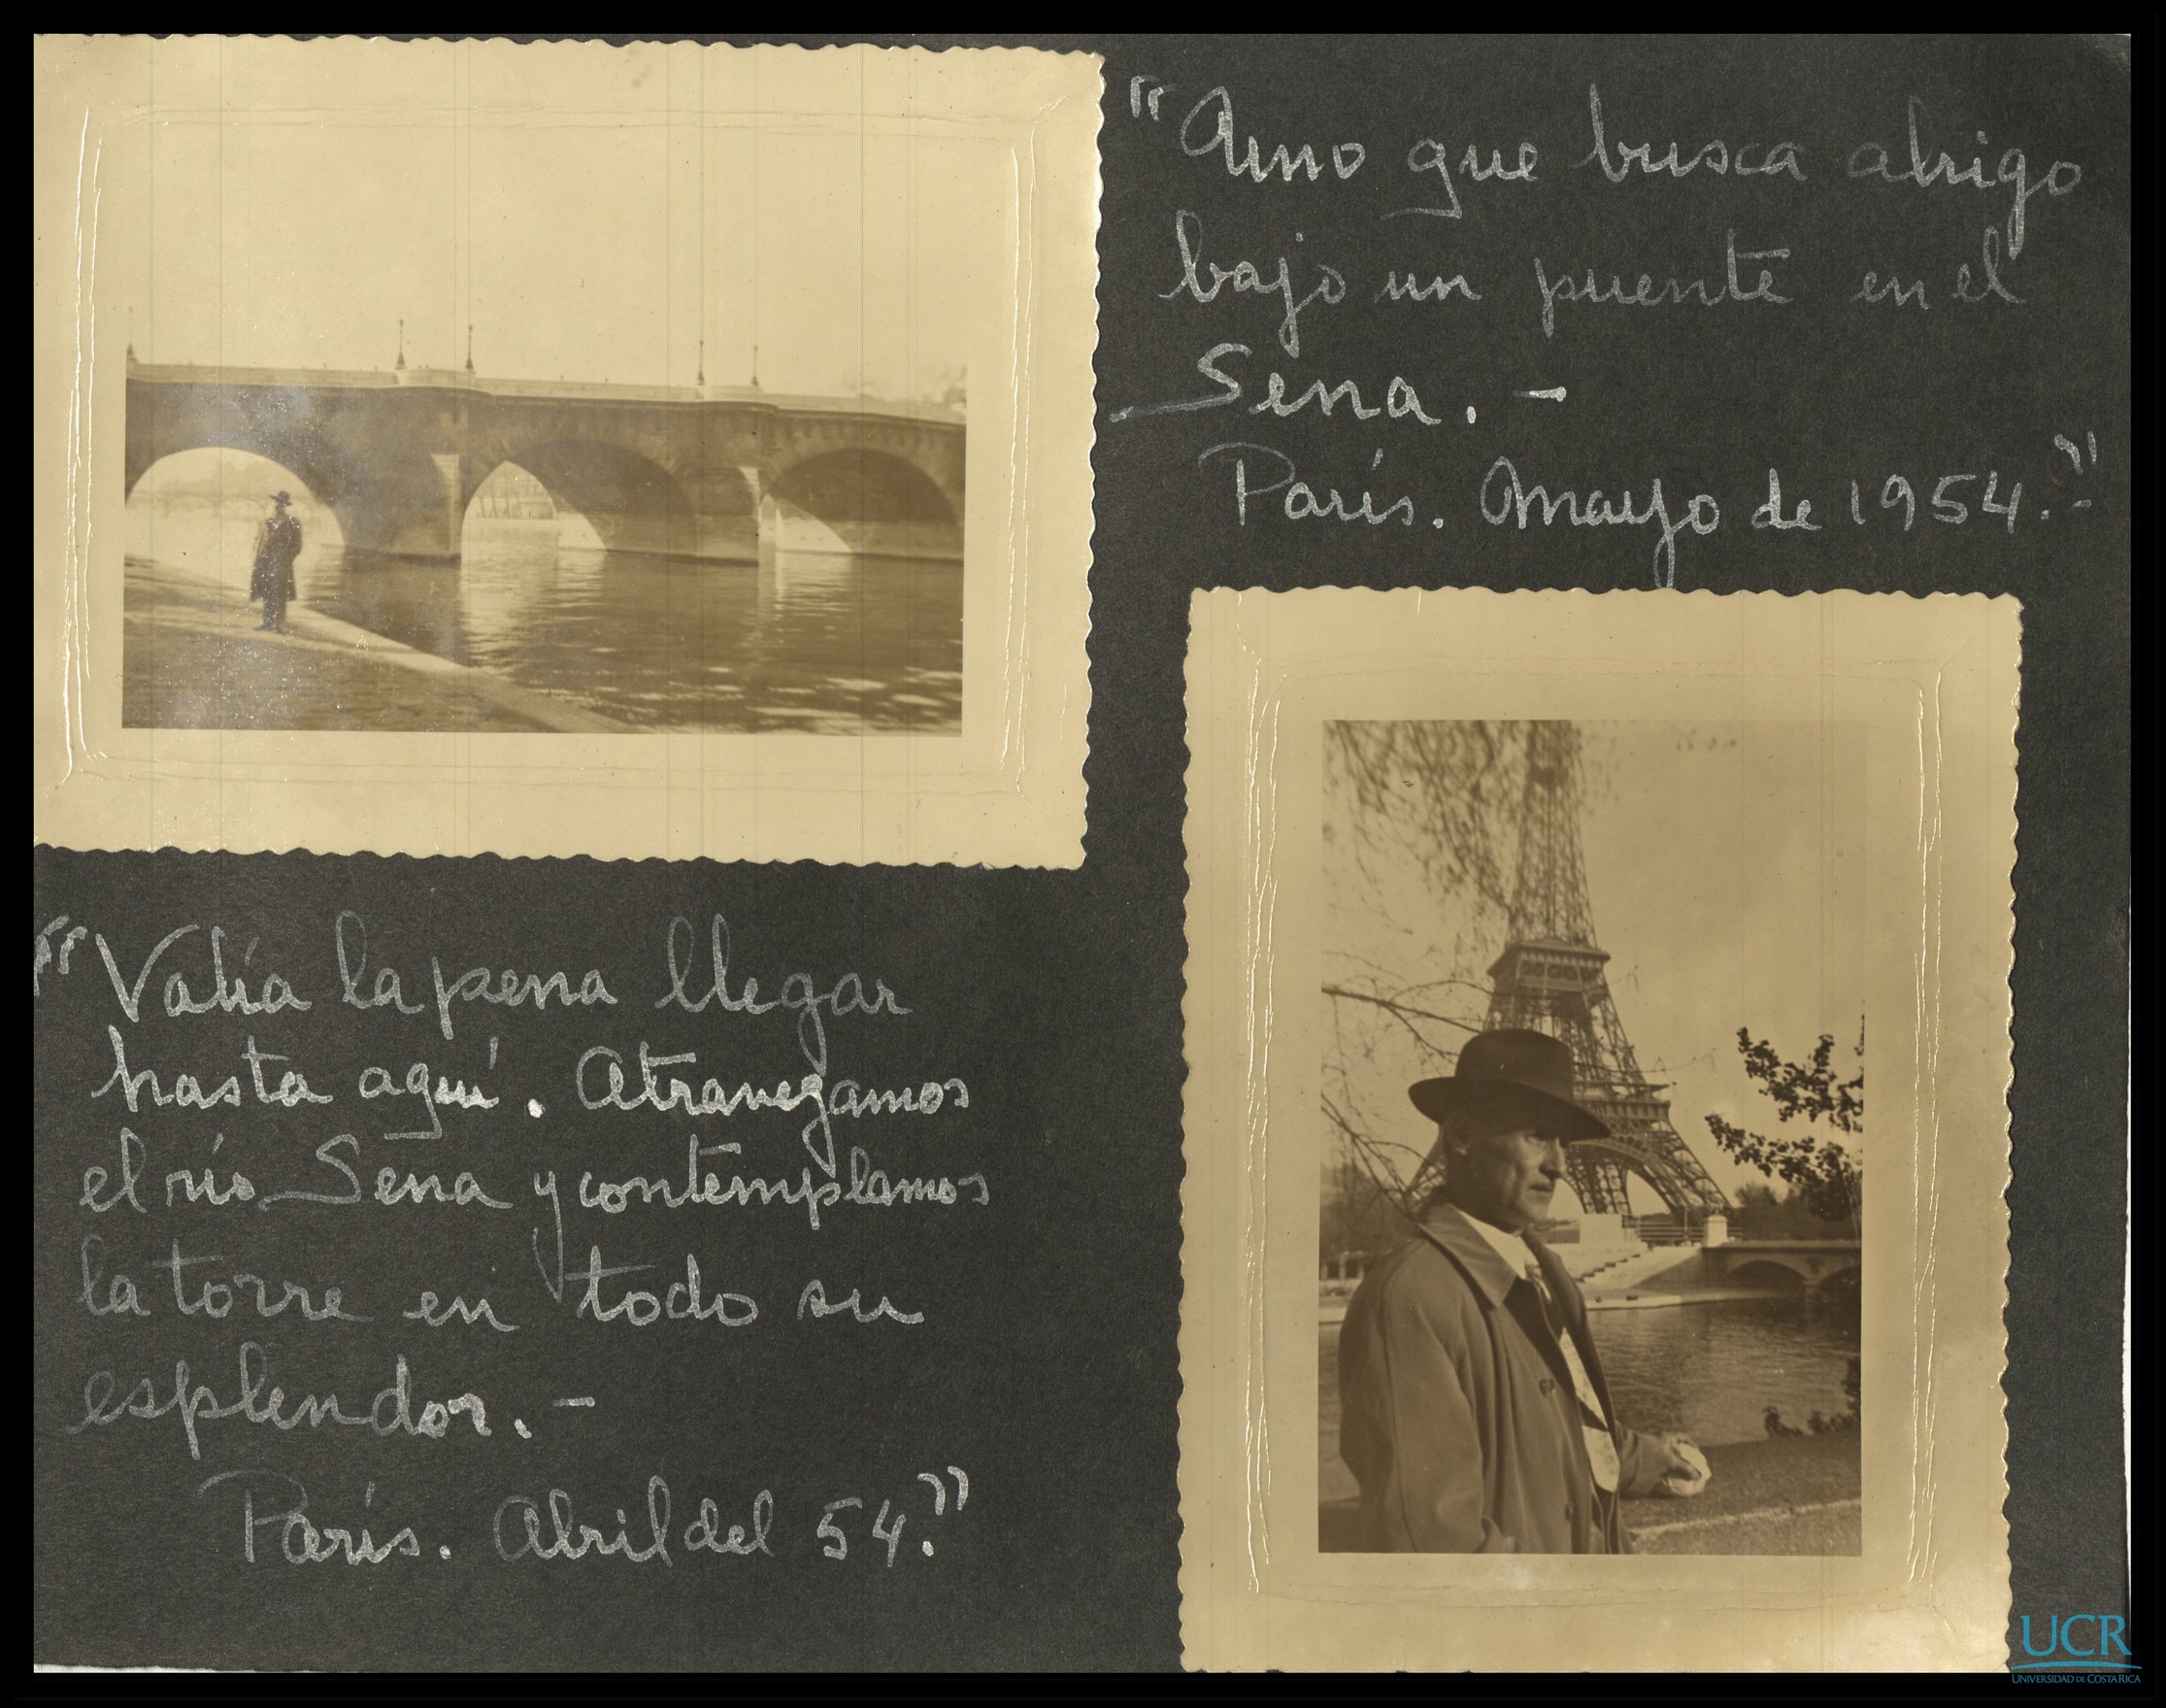 "Uno que busca abrigo
bajo un puente en el
Sena. -
París. Mayo de 1954.-"
"Valía la pena llegar
hasta aquí. Atravezamos
el río Sena y contemplamos
la torre en todo su
esplendor. -
París. Abril del 54."
UCR
UNIVERSIDAD DE COSTA RICA